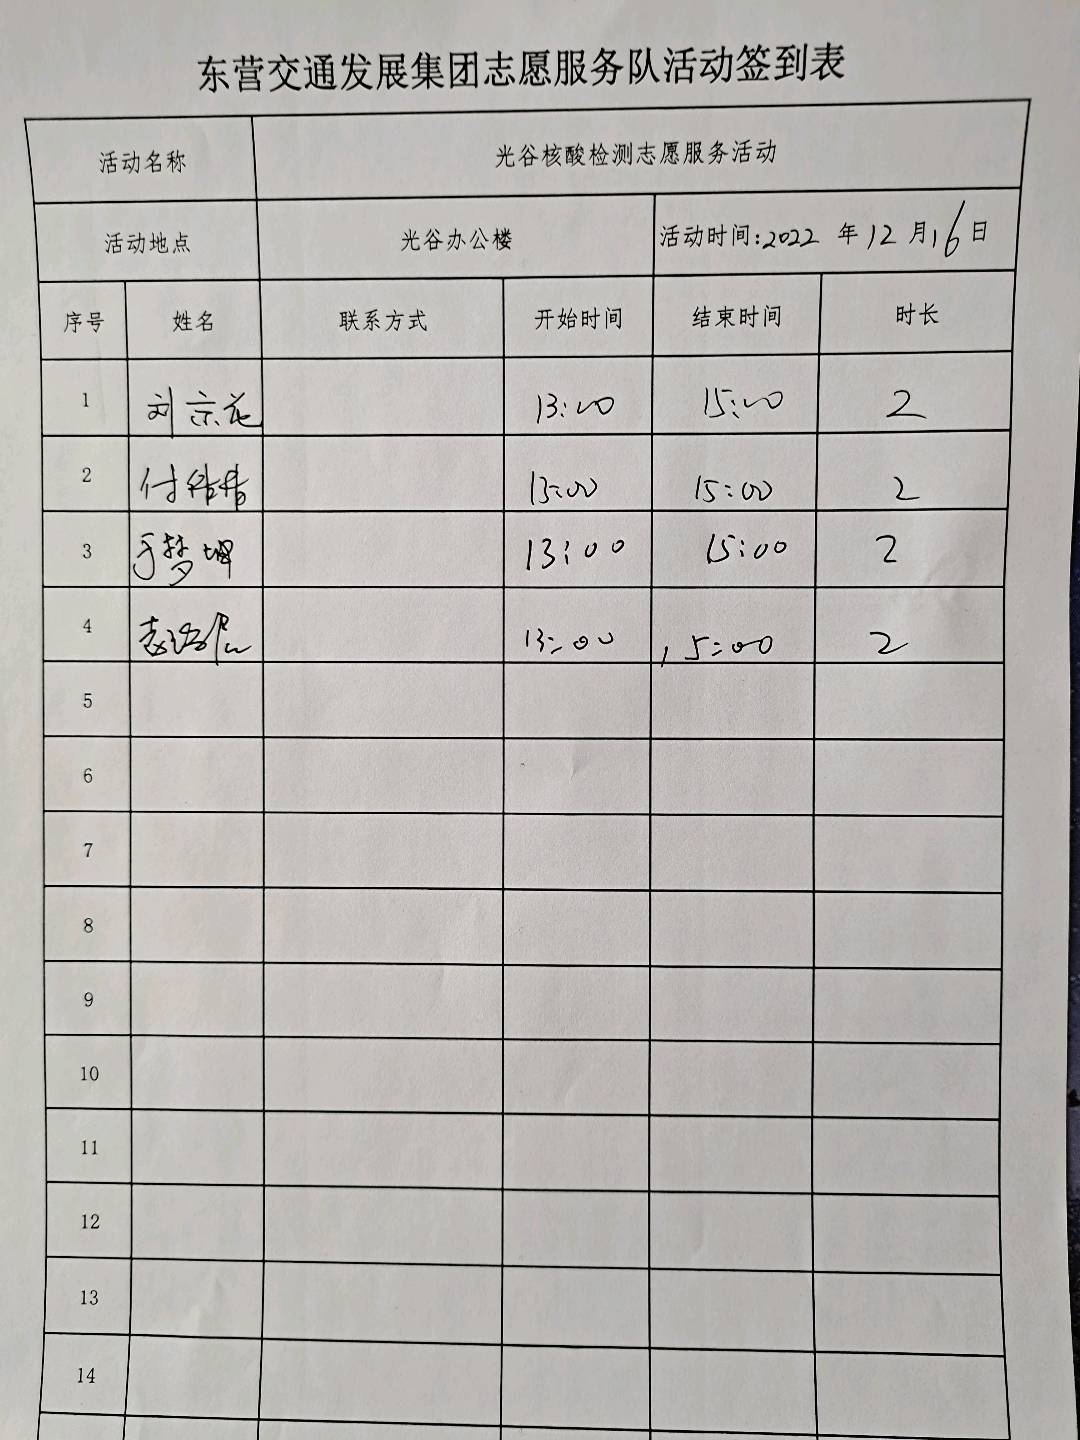 东营交通发展集团志愿服务队活动签到表
活动名称 光谷核酸检测志愿服务活动
活动地点 光谷办公楼 活动时间:2022 年 12 月 16 日
序号 姓名 联系方式 开始时间 结束时间 时长
1 刘 13:00 15:00 2
2 付 13:00 15:00 2
3 于梦 13:00 15:00 2
4 13:00 15:00 2
5
6
7
8
9
10
11
12
13
14